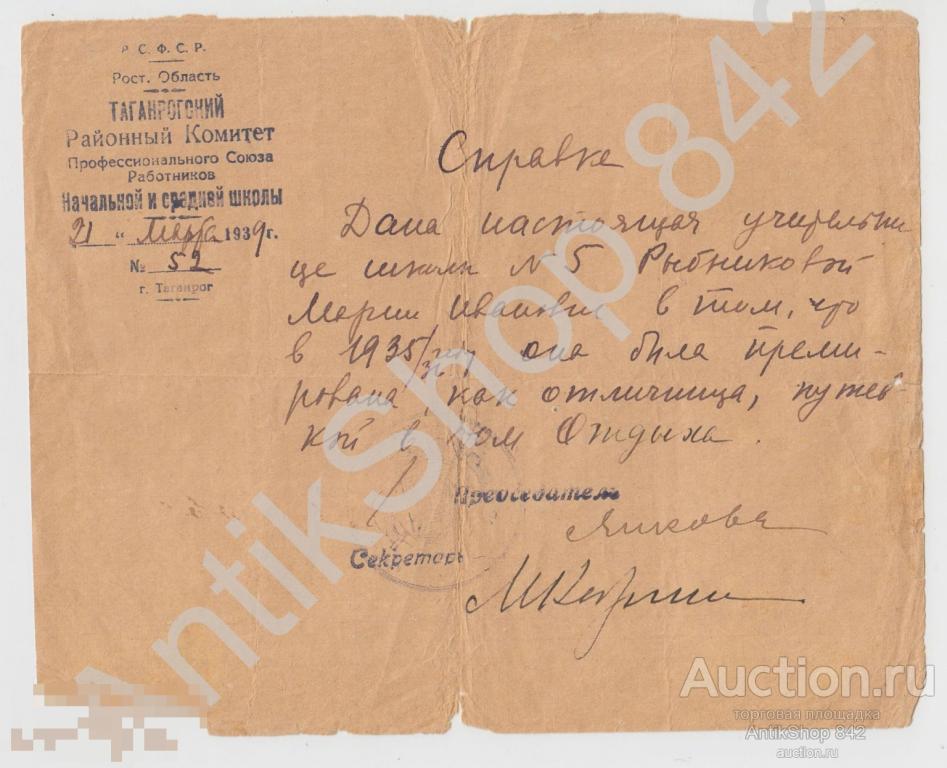 Р. С. Ф. С. Р.
Рост. Область
ТАГАНРОГСКИЙ
Районный Комитет
Профессионального Союза
Работников
Начальной и средней школы
21 " Марта 1939 г.
№ 52
г. Таганрог
Справка
Дана настоящая учительни
це школы № 5 Рыбниковой
Марии Ивановне в том, что
в 1935/36 она была преми-
рована, как отличница, путев
кой в дом Отдыха.
Председатель
Секретарь
AntikShop 842
Auction.ru
торговая площадка
AntikShop 842
auction.ru